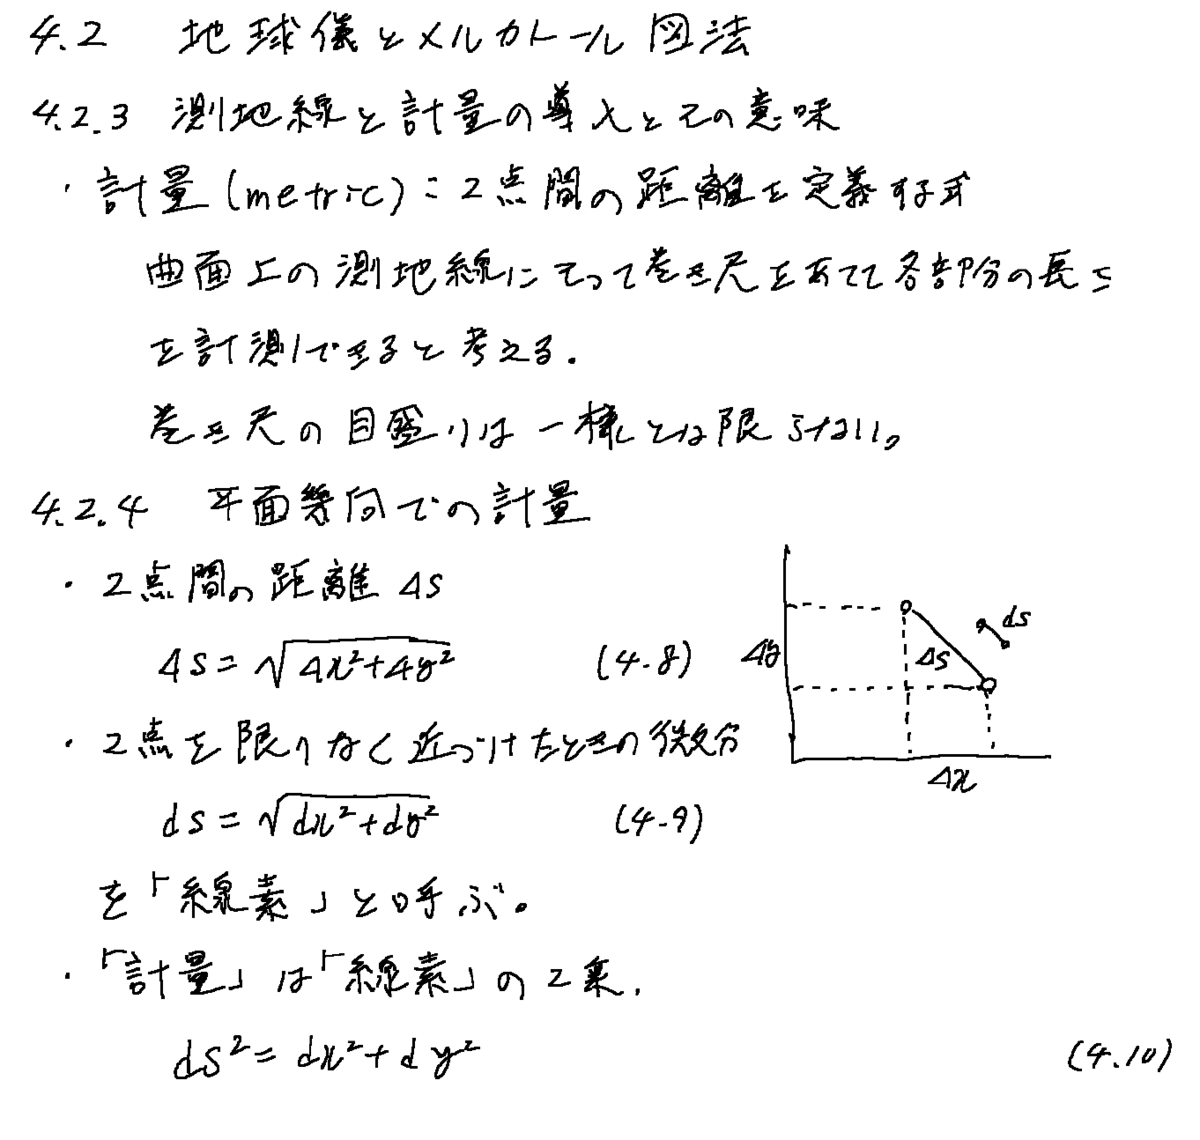 4.2 地球儀とメルカトール図法
4.2.3 測地線と計量の導入とその意味
・計量(metric):2点間の距離を定義する式
曲面上の測地線にそって巻き尺をあてて各部分の長さ
を計測できると考える.
巻き尺の目盛りは一様とは限らない。
4.2.4 平面幾何での計量
・2点間の距離 ΔS
ΔS=√Δx²+Δy² (4-8)
・2点を限りなく近づけたときの微分
ds=√dx²+dy² (4-9)
を「線素」と呼ぶ。
・「計量」は「線素」の2乗.
ds²=dx²+dy² (4.10)
Δy
ΔS
ds
Δx